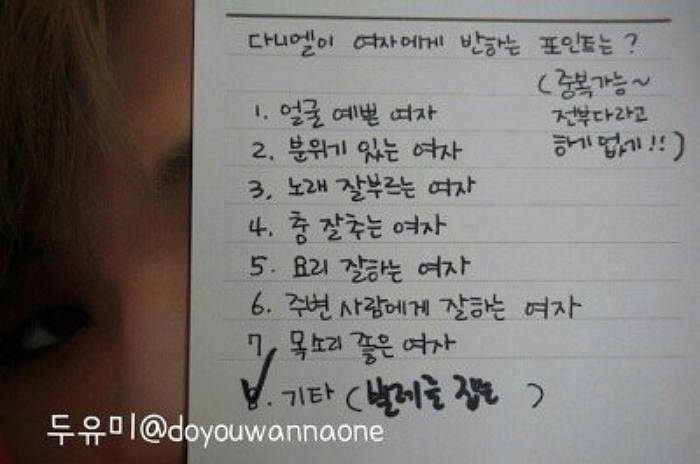 다니엘이 여자에게 반하는 포인트는?
(중복가능~
전부다라고
하기 없기!!)
1. 얼굴 예쁜 여자
2. 분위기 있는 여자
3. 노래 잘부르는 여자
4. 춤 잘추는 여자
5. 요리 잘하는 여자
6. 주변 사람에게 잘하는 여자
7. 목소리 좋은 여자
8. 기타 (벌레를 잡는 )
두유미@doyouwannaone